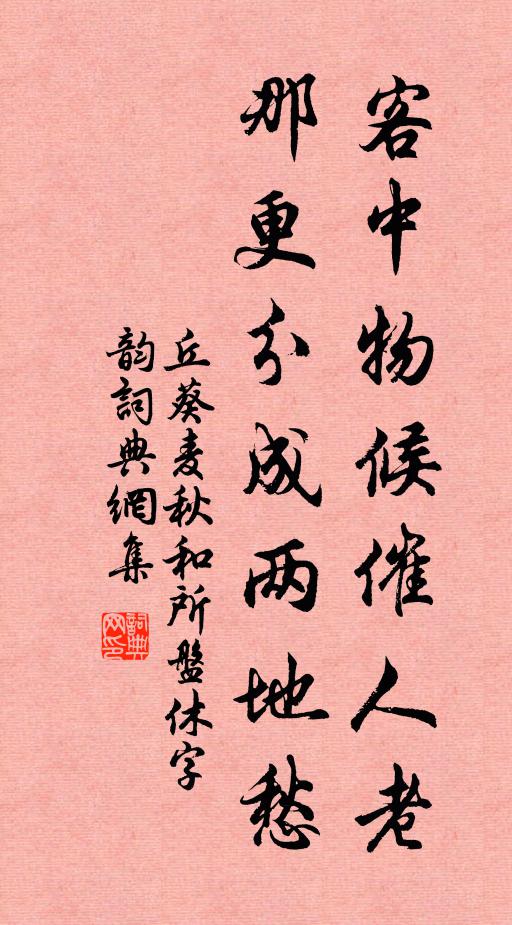 客中物候催人老
那更分成两地愁
丘葵麦秋和所盤休字
韵詞典網集
詞典
网印